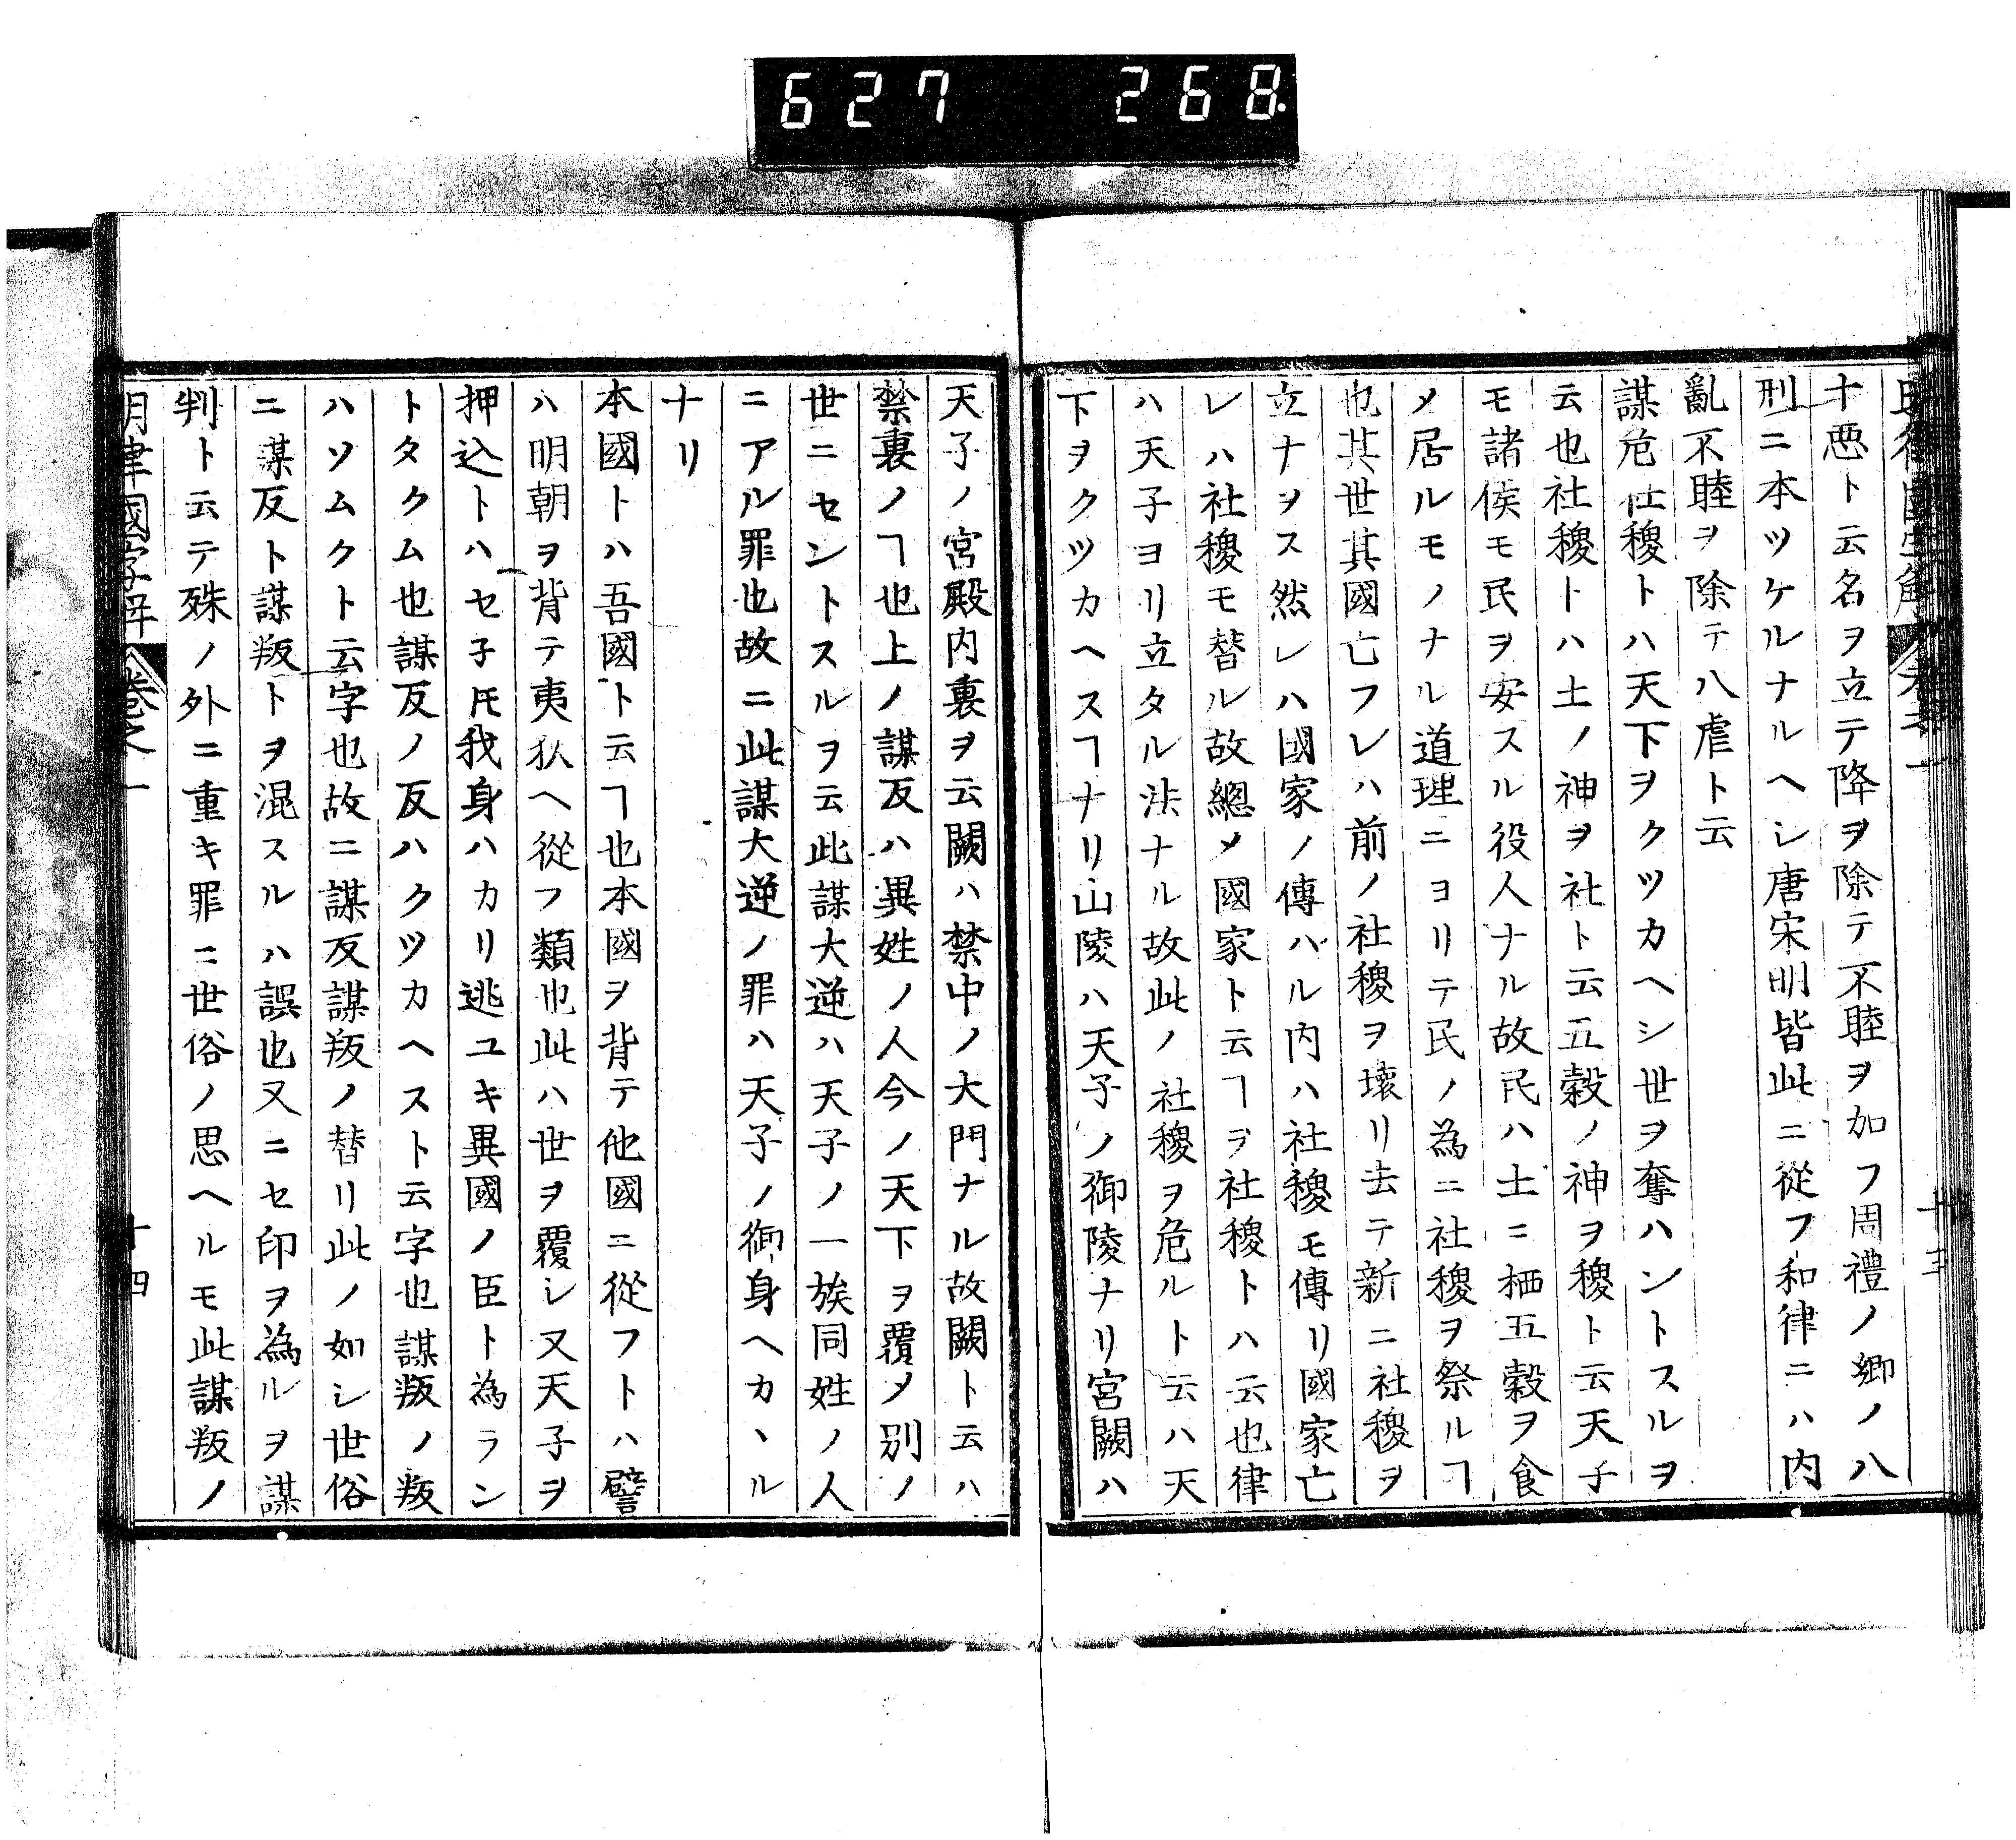 627 268
十惡ト云名ヲ立テ降ヲ除テ不睦ヲ加フ周禮ノ鄉ノ八
刑ニ本ツケルナルヘシ唐宋明皆此ニ從フ和律ニハ内
亂不睦ヲ除テ八虐ト云
謀危社稷トハ天下ヲクツカヘシ世ヲ奪ハントスルヲ
云也社稷トハ土ノ神ヲ社ト云五穀ノ神ヲ稷ト云天子
モ諸侯モ民ヲ安スル役人ナル故民ハ土ニ栖五穀ヲ食
メ居ルモノナル道理ニヨリテ民ノ為ニ社稷ヲ祭ルヿ
也其世其國亡フレハ前ノ社稷ヲ壞リ去テ新ニ社稷ヲ
立ナヲス然レハ國家ノ傳ハル内ハ社稷モ傳リ國家亡
レハ社稷モ替ル故總メ國家ト云ヿヲ社稷トハ云也律
ハ天子ヨリ立タル法ナル故此ノ社稷ヲ危ルト云ハ天
下ヲクツカヘスヿナリ山陵ハ天子ノ御陵ナリ宮闕ハ
天子ノ宮殿内裏ヲ云闕ハ禁中ノ大門ナル故闕ト云ハ
禁裏ノヿ也上ノ謀反ハ異姓ノ人今ノ天下ヲ覆メ別ノ
世ニセントスルヲ云此謀大逆ハ天子ノ一族同姓ノ人
ニアル罪也故ニ此謀大逆ノ罪ハ天子ノ御身ヘカヽル
ナリ
本國トハ吾國ト云ヿ也本國ヲ背テ他國ニ從フトハ譬
ハ明朝ヲ背テ夷狄ヘ從フ類也此ハ世ヲ覆シ又天子ヲ
押込トハセ子𪜈我身ハカリ逃ユキ異國ノ臣ト為ラン
トタクム也謀反ノ反ハクツカヘスト云字也謀叛ノ叛
ハソムクト云字也故ニ謀反謀叛ノ替リ此ノ如シ世俗
ニ謀反ト謀叛トヲ混スルハ誤也又ニセ印ヲ為ルヲ謀
判ト云テ殊ノ外ニ重キ罪ニ世俗ノ思ヘルモ此謀叛ノ
明律國字解 卷之一 十四